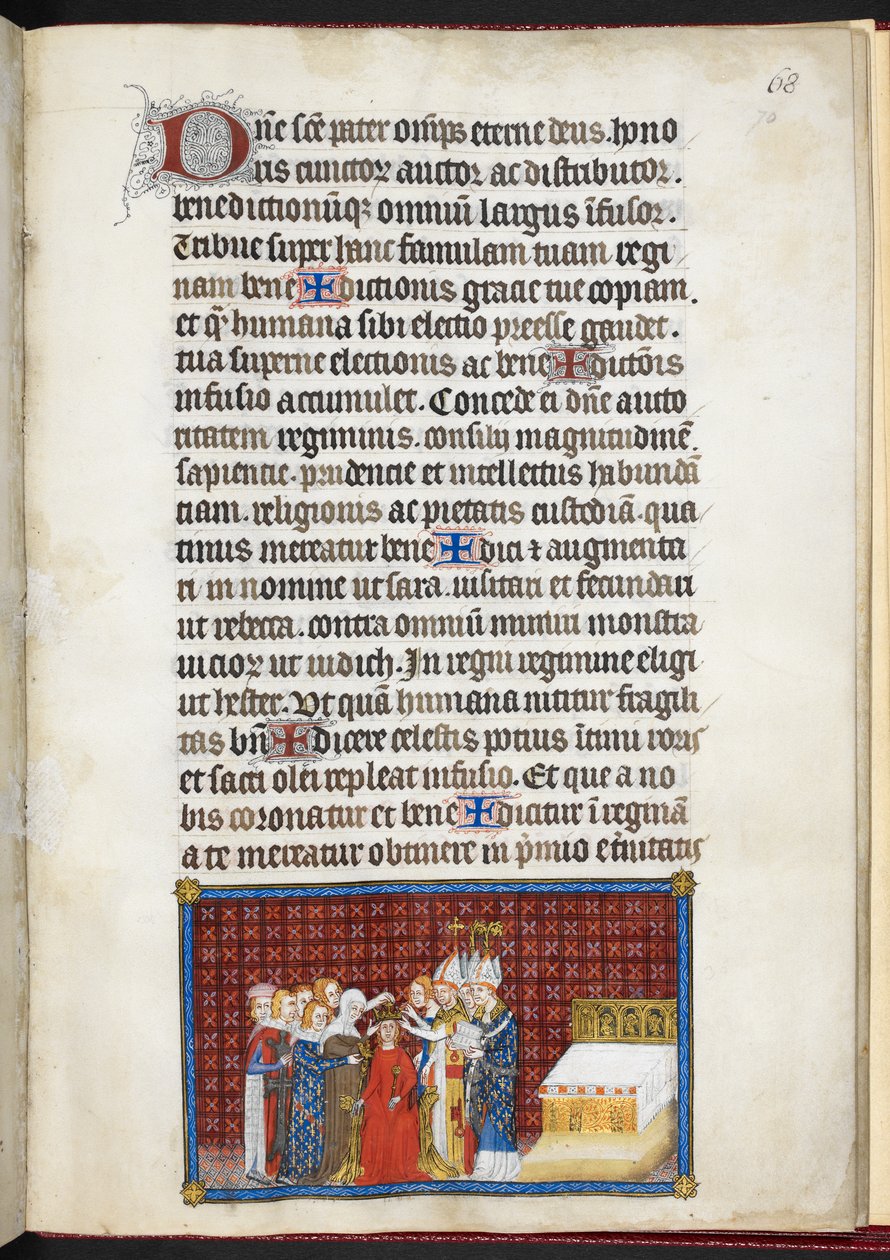 68
70
Dn̄e sc̄e pater om̄ps eterne deus. hono
ris cunctoꝝ auctor ac distributor.
benedictionūqꝫ omniū largus īfusor.
Tribue super hanc famulam tuam regi
nam bene✠dictionis gracie tue copiam.
et q̄ humana sibi electio preesse gaudet.
tua superne electionis ac bene✠dictōis
infusio accumulet. Concede ei dn̄e aucto
ritatem regiminis. consilij magnitudinē.
sapiencie. prudencie et intellectus habundā
tiam. religionis ac pietatis custodiā. qua
tinus mereatur bene✠dici ⁊ augmenta
ri in nomine ut sara. uisitari et fecundari
ut rebecca. contra omniū muniri monstra
uicioꝝ ut iudich. In regni regimine eligi
ut hester. Ut quā humana nititur fragili
tas bn̄✠dicere celestis potius ītimi roris
et sacri olei repleat infusio. Et que a no
bis coronatur et bene✠dicitur ī reginā
a te mereatur obtinere in p̄mio et̄nitatis